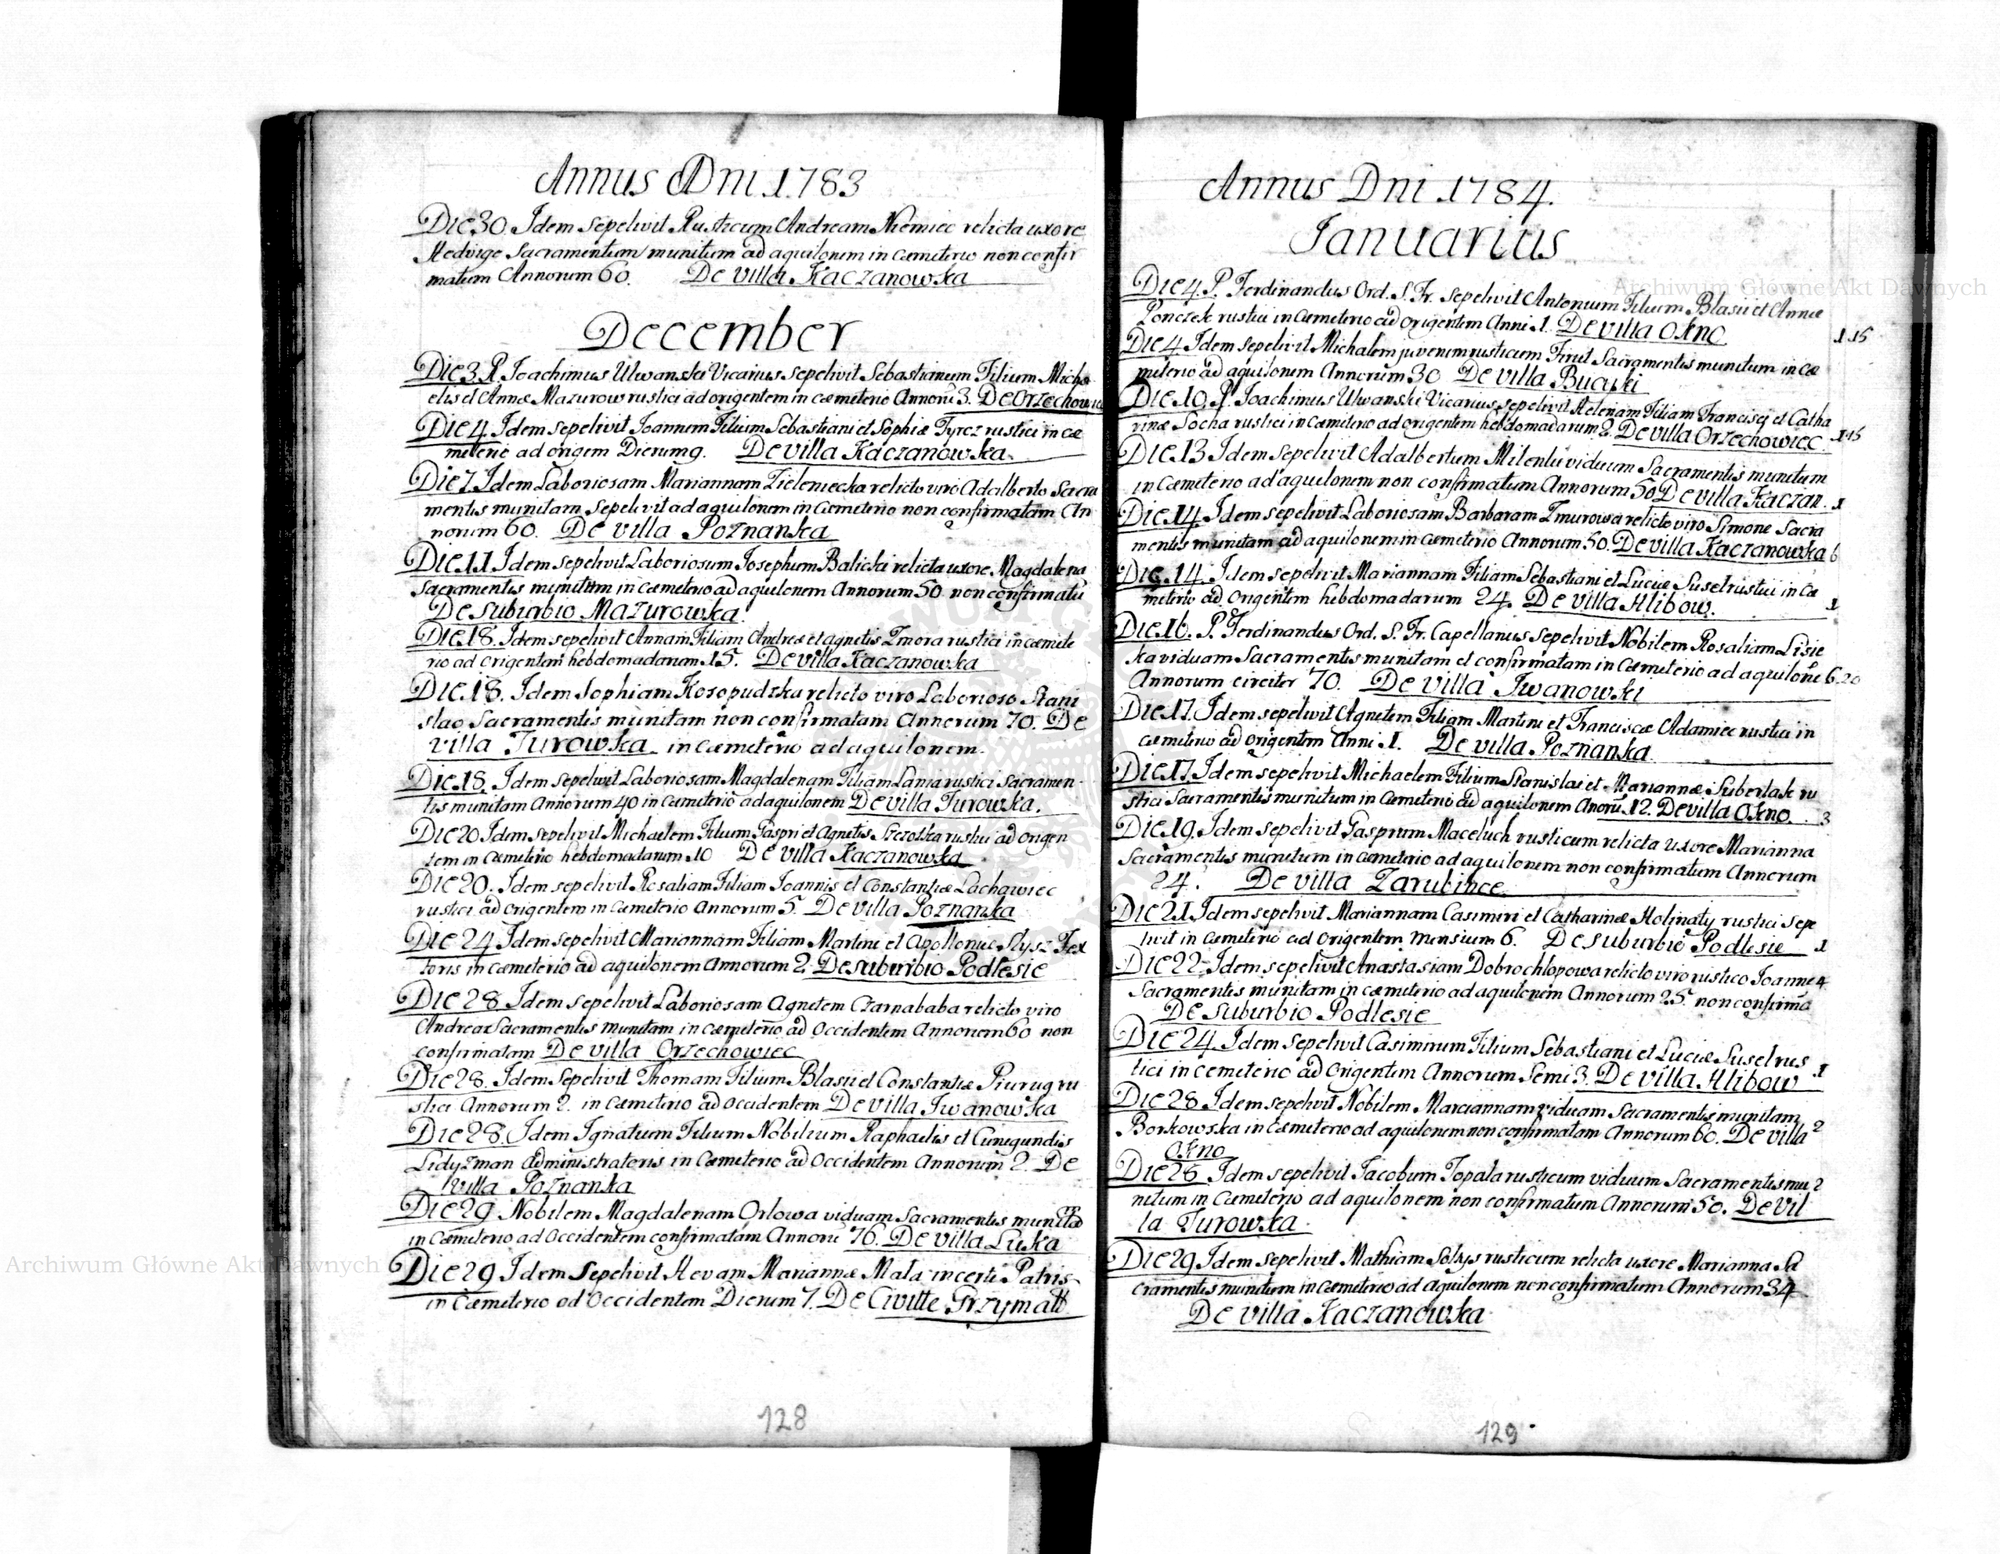 Annus Dni 1783
Die 30. Idem sepelivit Rusticum Andream Niemiec relicta uxore
Hedvige Sacramentum munitum ad aquilonem in cæmeterio non confir
matum Annorum 60. De villa Kaczanowka
December
Die 3. P. Joachimus Ulwanski Vicarius sepelivit Sebastianum Filium Micha
elis et Annæ Mazurow rustici ad origentem in cæmeterio Annorū 3. De Orzechowiec
Die 4 Idem sepelivit Joannem Filium Sebastiani et Sophiæ Tyrcz rustici in cæ
meterio ad origem Dierum 9. De villa Kaczanowka.
Die 7. Idem Laboriosam Mariannam Zieleniecka relicto viro Adalberto Sacra
mentis munitam sepelivit ad aquilonem in Cæmeterio non confirmatam An
norum 60. De villa Poznanka
Die 11. Idem sepelivit Laboriosum Josephum Balicki relicta uxore Magdalena
Sacramentis munitum in cæmeterio ad aquilonem Annorum 50. non confirmatū
De suburbio Mazurowka.
Die 18. Idem sepelivit Annam Filiam Andreæ et Agnetis Zmora rustici in cæmete
rio ad origentem hebdomadarum 15. De villa Kaczanowka
Die 18. Idem Sophiam Kosopudzka relicto viro Laborioso Stani
slao Sacramentis munitam non confirmatam Annorum 70. De
villa Turowka in cæmeterio ad aquilonem.
Die 18. Idem sepelivit Laboriosam Magdalenam Filiam Lania rustici Sacramen-
tis munitam Annorum 40 in Cæmeterio ad aquilonem De villa Turowka.
Die 20 Idem sepelivit Michaelem Filium Gaspri et Agnetis Szczotka rustici ad origen
tem in Cæmeterio hebdomadarum 10 De villa Kaczanowka
Die 20. Idem sepelivit Rosaliam Filiam Joannis et Constantiæ Lachowiec
rustici ad origentem in Cæmeterio Annorum 5. De villa Poznanka
Die 24 Idem sepelivit Mariannam Filiam Martini et Apolloniæ Slysz Tex
toris in cæmeterio ad aquilonem Annorum 2. De suburbio Podlesie
Die 28. Idem sepelivit Laboriosam Agnetem Czarnababa relicto viro
Andreæ Sacramentis munitam in cæmeterio ad Occidentem Annorum 60 non
confirmatam De villa Orzechowiec
Die 28. Idem Sepelivit Thomam Filium Blasii et Constantiæ Piurug ru
stici Annorum 2. in Cæmeterio ad Occidentem De villa Iwanowka
Die 28. Idem Ignatium Filium Nobilium Raphaelis et Cunegundis
Lidyzman administratoris in Cæmeterio ad Occidentem Annorum 2. De
villa Poznanka
Die 29 Nobilem Magdalenam Orlowa viduam Sacramentis munitam
in Cæmeterio ad Occidentem confirmatam Annorū 76. De villa Luka
Die 29 Idem Sepelivit Hevam Mariannæ Mala incerti Patris
in Cæmeterio ad Occidentem Dierum 7. De Civitte Grzymałł
128
Annus Dni 1784.
Ianuarius
Die 4. P. Ferdinandus Ord. S. Fr. sepelivit Antonium Filium Blasii et Annæ
Ponczek rustici in Cæmeterio ad origentem Anni 1. De villa Okno 1 15
Die 4 Idem sepelivit Michalem juvenem rusticum Firut Sacramentis munitum in cæ
meterio ad aquilonem Annorum 30 De villa Bucyki
Die 10. P. Joachimus Ulwanski Vicarius sepelivit Helenam Filiam Francisci et Catha
rinæ Socha rustici in Cæmiterio ad origentem hebdomadarum 2. De villa Orzechowiec. 1 15
Die 13 Idem sepelivit Adalbertum Milenki viduum Sacramentis munitum
in Cæmeterio ad aquilonem non confirmatum Annorum 50 De villa Kaczan. 1
Die 14 Idem sepelivit Laboriosam Barbaram Zmurowa relicto viro Simone Sacra
mentis munitam ad aquilonem in cæmeterio Annorum 50. De villa Kaczanowka 6
Die 14. Idem sepelivit Mariannam Filiam Sebastiani et Luciæ Susel rustici in Cæ
meterio ad Origentem hebdomadarum 24. De villa Hlibow. 1
Die 16. P. Ferdinandus Ord. S. Fr. Capellanus sepelivit Nobilem Rosaliam Lisie
ka viduam Sacramentis munitam et confirmatam in Cæmeterio ad aquilonē 6.20
Annorum circiter 70. De villa Iwanowki
Die 17. Idem sepelivit Agnetem Filiam Martini et Franciscæ Adamiec rustici in
cæmeterio ad origentem Anni 1. De villa Poznanka
Die 17. Idem sepelivit Michaelem Filium Stanislai et Mariannæ Suberlak ru
stici Sacramentis munitum in Cæmeterio ad aquilonem Anorū 12. De villa Okno. 3
Die 19. Idem sepelivit Gasprum Maceluch rusticum relicta uxore Marianna
Sacramentis munitum in cæmeterio ad aquilonem non confirmatum Annorum
24. De villa Zarubince
Die 21 Idem sepelivit Mariannam Casimiri et Catharinæ Holinaty rustici sepe
livit in Cæmeterio ad Origentem Mensium 6. De suburbio Podlesie 1
Die 22. Idem sepelivit Anastasiam Dobrochlopowa relicto viro rustico Joanne 4
Sacramentis munitam in cæmeterio ad aquilonem Annorum 25. non confirmā
De suburbio Podlesie
Die 24. Idem sepelivit Casimirum Filium Sebastiani et Luciæ Susel rus
tici in cemeterio ad Origentem Annorum Semi 3. De villa Hlibow 1
Die 28 Idem sepelivit Nobilem Mariannam viduam Sacramentis munitam
Borkowska in Cæmeterio ad aquilonem non confirmatam Annorum 60. De villa 2
Okno
Die 28 Idem sepelivit Jacobum Topala rusticum viduum Sacramentis mu 2
nitum in Cæmeterio ad aquilonem non confirmatum Annorum 50. De vil
la Turowka.
Die 29 Idem sepelivit Mathiam Soltys rusticum relicta uxore Marianna Sa
cramentis munitum in cæmeterio ad aquilonem non confirmatum Annorum 34
De villa Kaczanowka
129
Archiwum Główne Akt Dawnych
Archiwum Główne Akt Dawnych